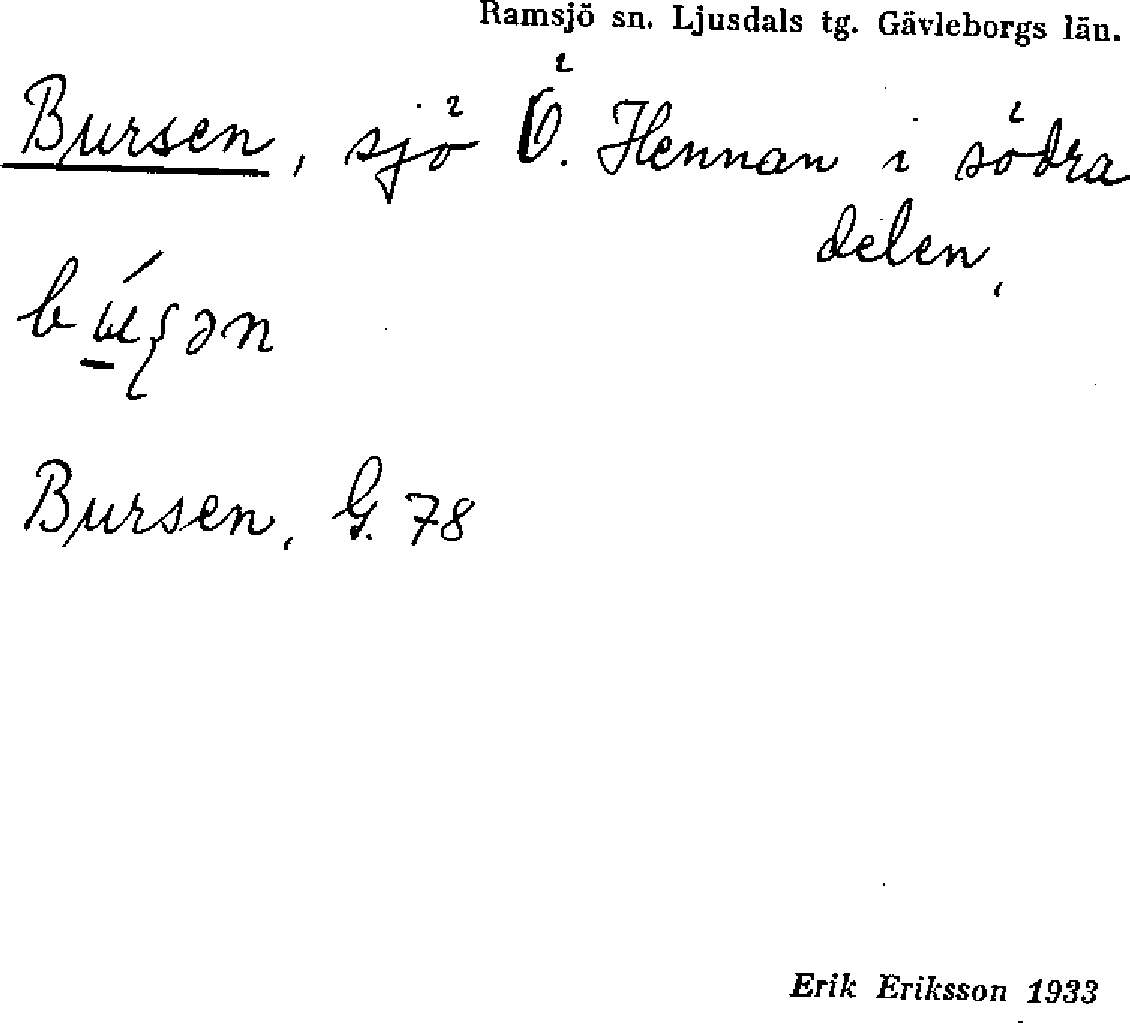 Ramsjö sn. Ljusdals tg. Gävleborgs län.
Bursen, sjö Ö. Hennan i södra
delen,
Bursen, G. 78
Erik Eriksson 1933